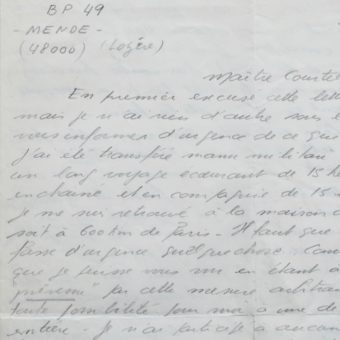 BP 49
- MENDE -
(48000) (Lozère)
Maître Courte
En premier excusé cette lett
mais je n'ai rien d'autre sous l
vous informer d'urgence de ce que
J'ai été transféré manu militari
un long voyage écoeurant de 15 he
enchainé et en compagnie de 15
je me suis retrouvé à la maison d
soit à 600 km de Paris - Il faut que
fasse d'urgence quelque chose. Com
que je puisse vous en étant à
"prévenu" par cette mesure arbitrai
toute possibilité pour moi à une de
entière. Je n'ai participé à aucun